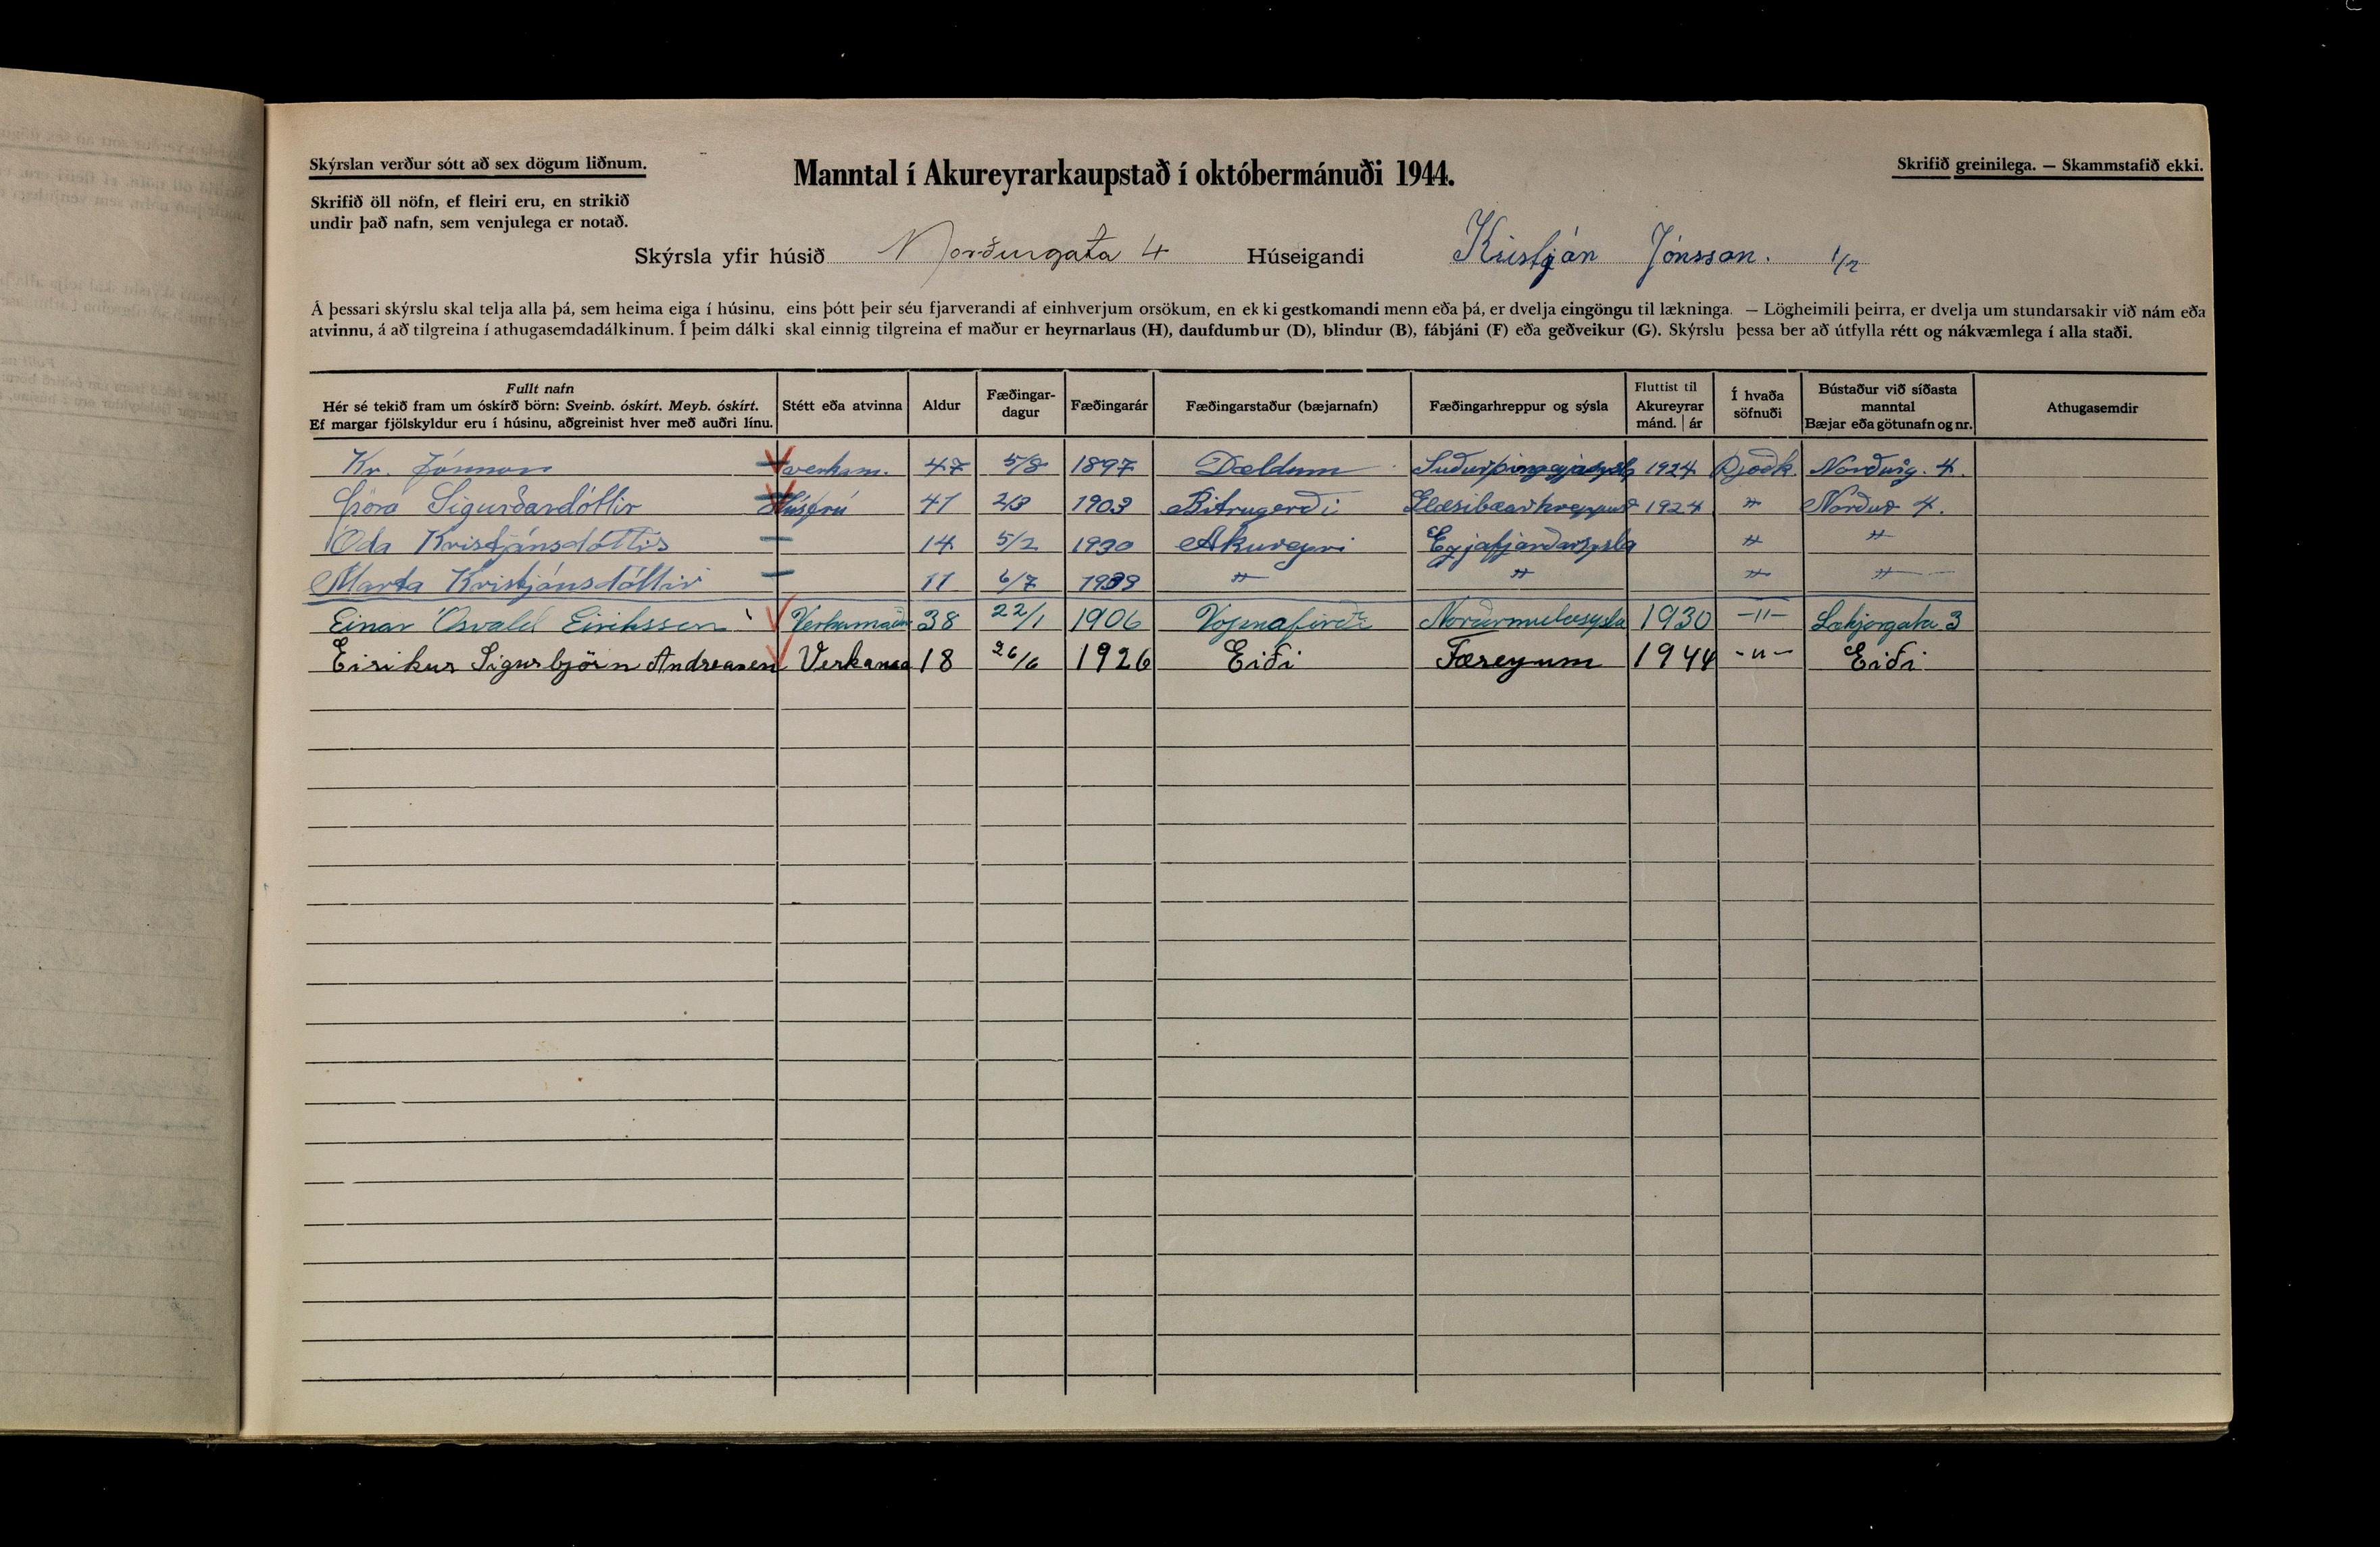 Skýrslan verður sótt að sex dögum liðnum.
Manntal í Akureyrarkaupstað í októbermánuði 1944.
Skrifið greinilega. — Skammstafið ekki.
Skrifið öll nöfn, ef fleiri eru, en strikið
undir það nafn, sem venjulega er notað.
Skýrsla yfir húsið Norðurgata 4 Húseigandi Kristján Jónsson. 1/2
Á þessari skýrslu skal telja alla þá, sem heima eiga í húsinu, eins þótt þeir séu fjarverandi af einhverjum orsökum, en ekki gestkomandi menn eða þá, er dvelja eingöngu til lækninga. — Lögheimili þeirra, er dvelja um stundarsakir við nám eða
atvinnu, á að tilgreina í athugasemdadálkinum. Í þeim dálki skal einnig tilgreina ef maður er heyrnarlaus (H), daufdumbur (D), blindur (B), fábjáni (F) eða geðveikur (G). Skýrslu þessa ber að útfylla rétt og nákvæmlega í alla staði.
Fullt nafn
Hér sé tekið fram um óskírð börn: Sveinb. óskírt. Meyb. óskírt.
Ef margar fjölskyldur eru í húsinu, aðgreinist hver með auðri línu.
Stétt eða atvinna
Aldur
Fæðingar-
dagur
Fæðingarár
Fæðingarstaður (bæjarnafn)
Fæðingarhreppur og sýsla
Fluttist til
Akureyrar
mánd. | ár
Í hvaða
söfnuði
Bústaður við síðasta
manntal
Bæjar eða götunafn og nr.
Athugasemdir
Kr. Jónsson verkam. 47 5/8 1897 Dældum Suðurþingeyjasysla 1924 Þjóðk. Norðurg. 4.
Þóra Sigurðardóttir Húsfrú 41 2/3 1903 Bitrugerði Glæsibæarhreppur 1924 " Norður 4.
Oda Kristjánsdóttir 14 5/2 1930 Akureyri Eyjafjarðarsysla " "
Marta Kristjánsdóttir 11 6/7 1933 " " " "
Einar Ósvald Eiríksson Verkamaður 38 22/1 1906 Vopnafirði Norðurmulasysla 1930 -"- Lækjargata 3
Eirikur Sigurbjörn Andreasen 18 26/6 1926 Eiði Færeyum 1944 -"- Eiði